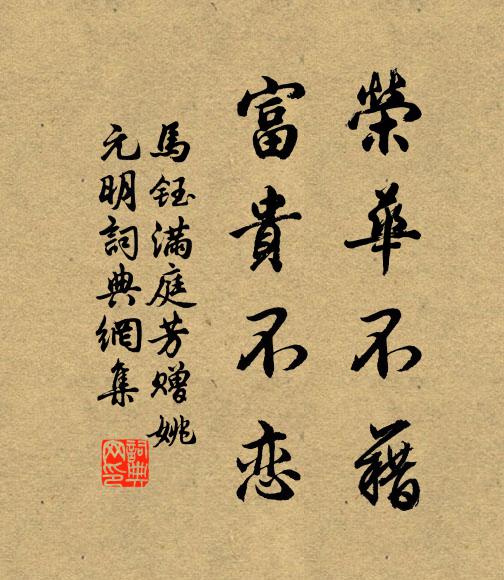 榮華不藉
富貴不恋
馬鈺满庭芳赠姚
元明詞典網集
詞典
网印